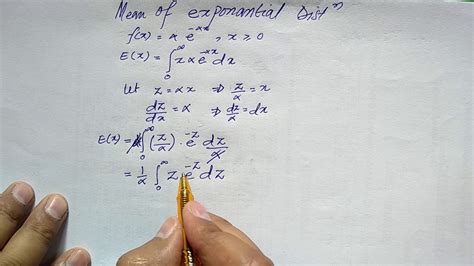 Mean of exponential Distⁿ
f(x) = α e^{-αx}, x ≥ 0
E(x) = ∫_0^∞ x α e^{-αx} dx
Let z = αx ⇒ z/α = x
dz/dx = α ⇒ dz/α = dx
E(x) = α ∫_0^∞ (z/α) · e^{-z} dz/α
= 1/α ∫_0^∞ z e^{-z} dz